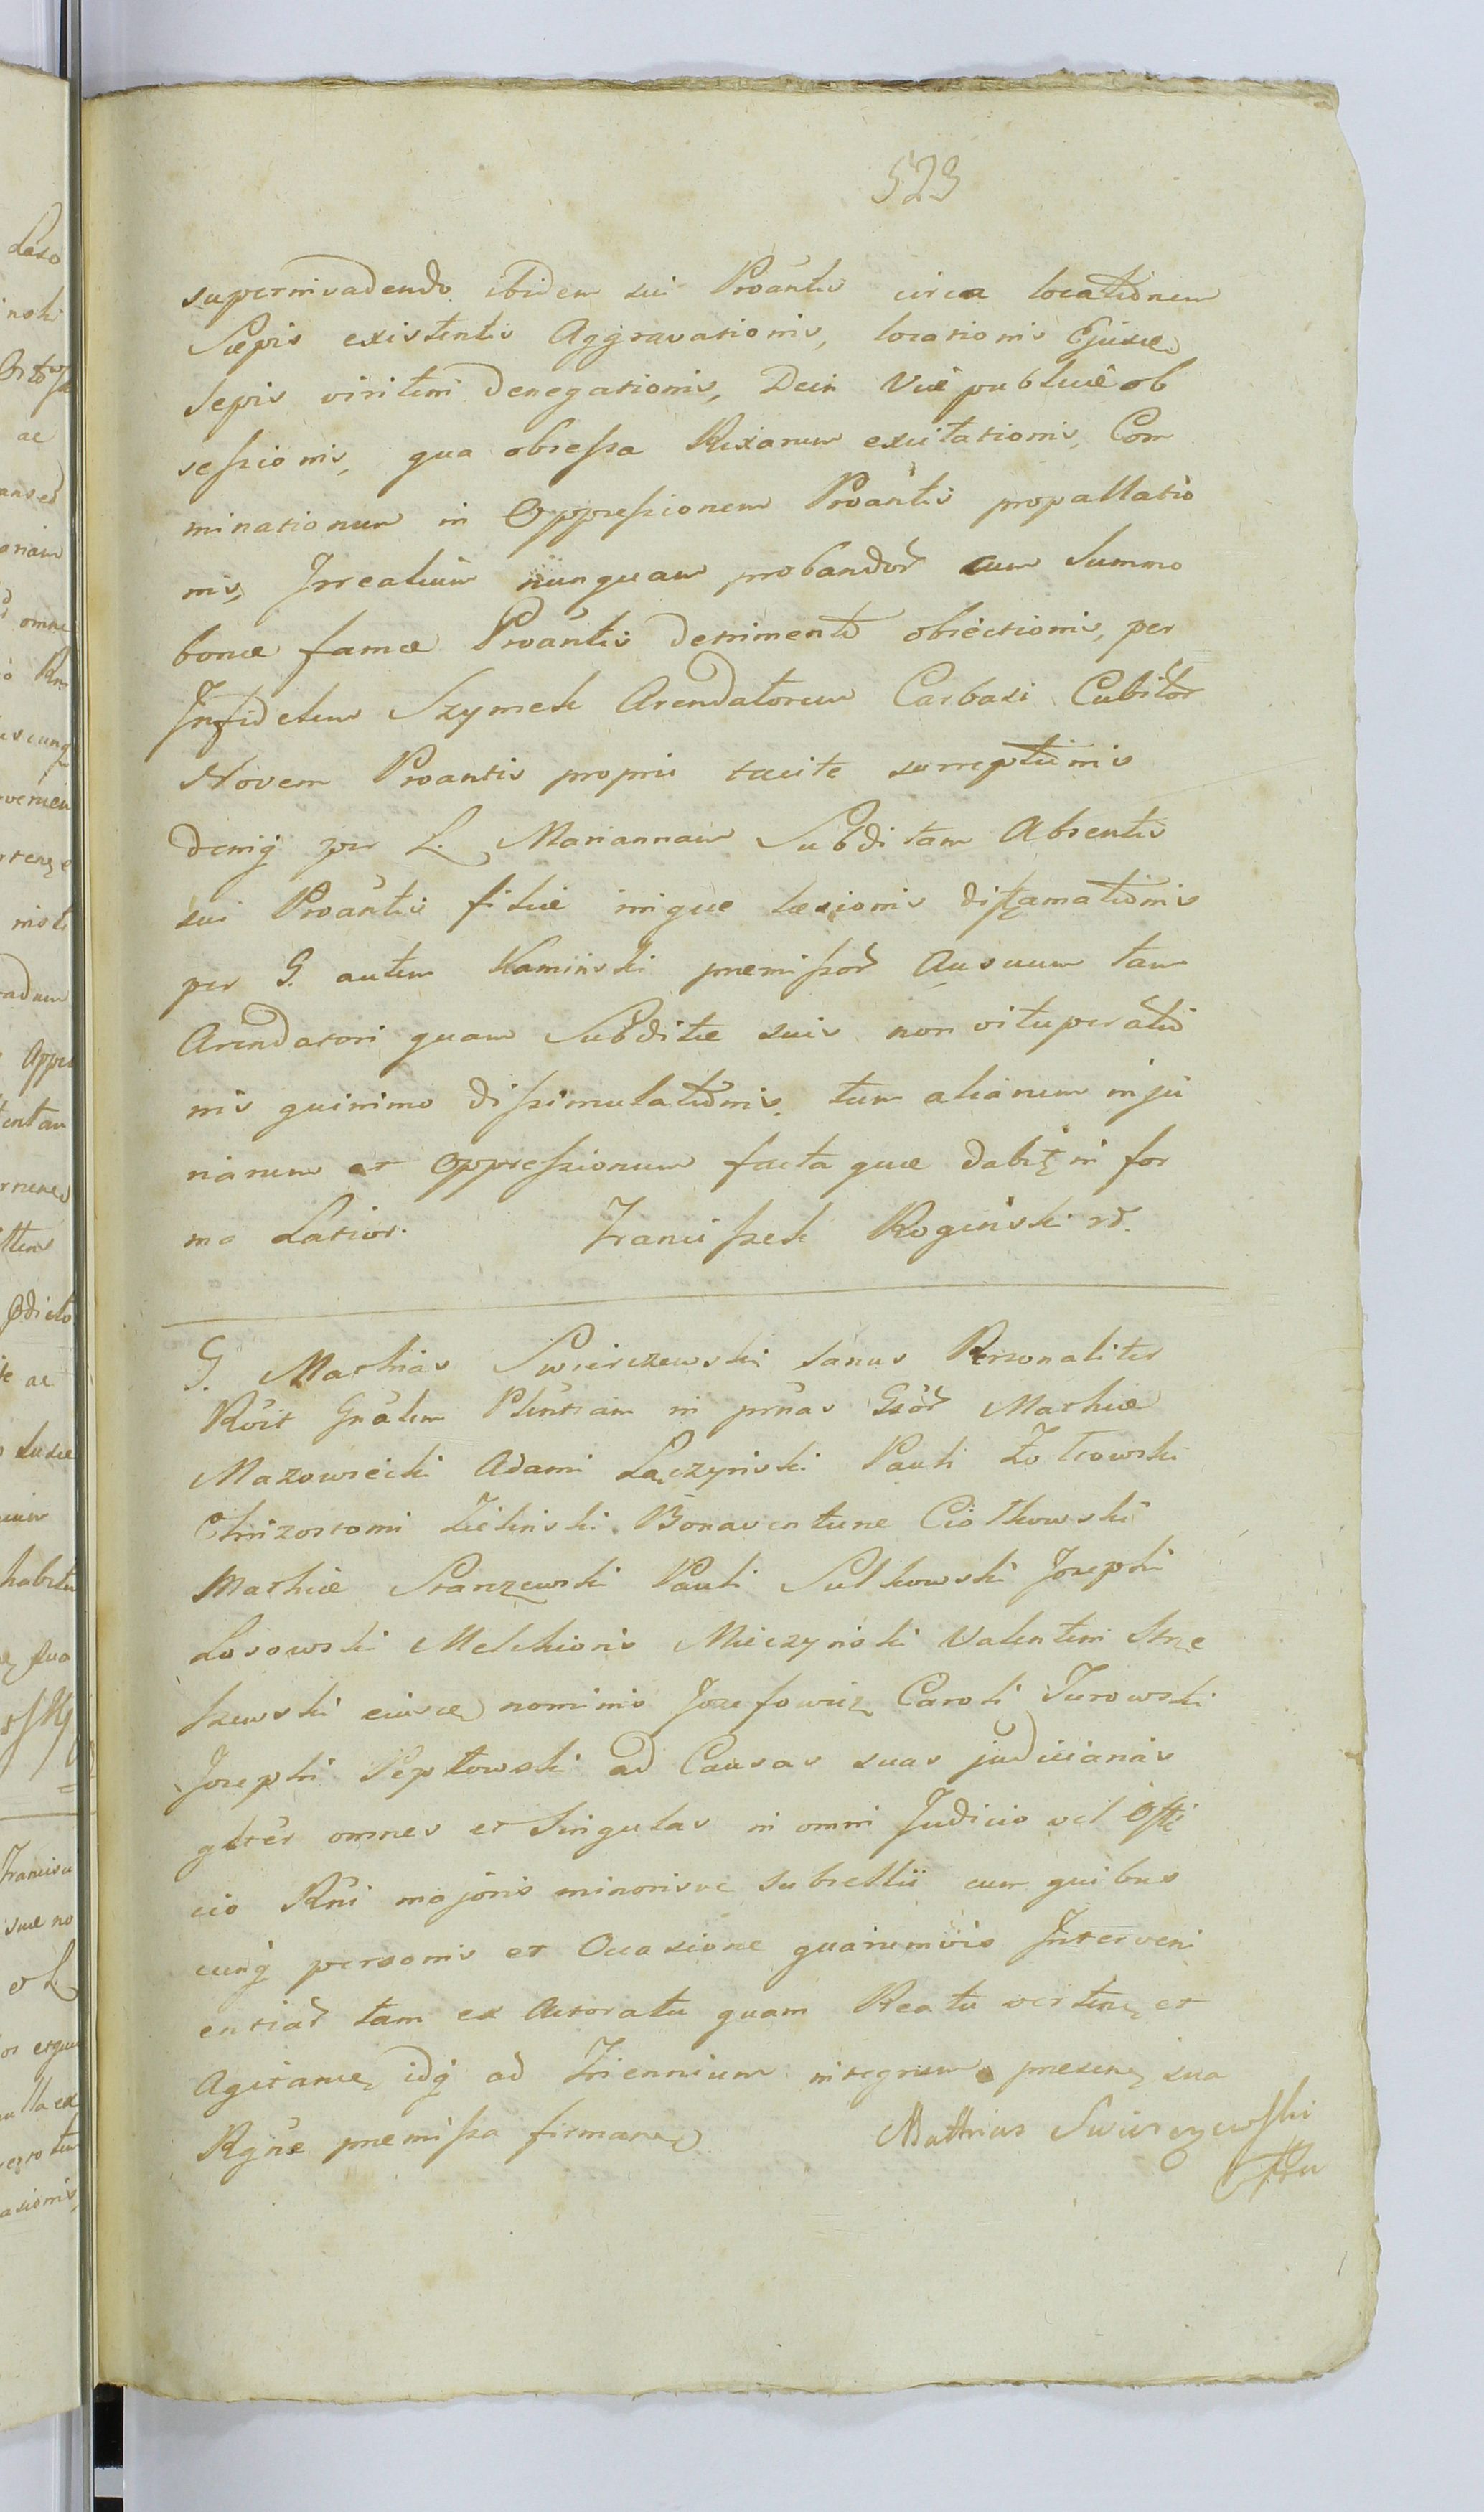 523
supernivadendo ibidem sui Proantis circa locationem
Sæpis existentis Aggravationis, locationis Ejusce
sepis viritim denegationis, Dein Viæ publicæ ob
sessionis, qua obsessa Rixarum excitationis, Com
minationum in Oppressionem Proantis propallatio
nis, Irrealium nunquam probandor cum Summo
bonæ famæ Proantis detrimento objectionis, per
Infidelem Szymek Arendatorem Carbasi Cubitor
Novem Proantis proprii tacite surreptionis
deniq per L. Mariannam Subditam Absentis
sui Proantis filiæ inique læsionis diffamationis
per G. autem Kaminski præmissor Ausuum tam
Arendatori quam Subditæ suis non vituperatio
nis quinimo dissimulationis, tum aliarum inju
riarum et oppressionum facta quæ dabit in for
ma Latior. Franciszek Rogiński
G. Mathias Swierczewski sanus Personaliter
Roit Gnalem Plentiam in prnas Gsor Mathiæ
Mazowiecki Adami Łączyński Pauli Żołtowski
Chrizostomi Zielinski Bonaventuræ Ciółkowski
Mathiæ Starzewski Pauli Sulkowski Josephi
Lasowski Melchioris Mieczynski Valentini Strze
szewski eiusce nominis Jozefowicz Caroli Turowski
Josephi Peptowski ad Causas suas judiciarias
glter omnes et Singulas in omni Judicio vel Offi
cio Rni majoris minorisve subsellii cum quibus
cunq personis et Occasione quarumvis Interveni
entiar tam ex Actoratu quam Reatu verten et
Agitan idq ad Triennium integrum presen sua
Rgne præmissa firman Mathias Swierczewski